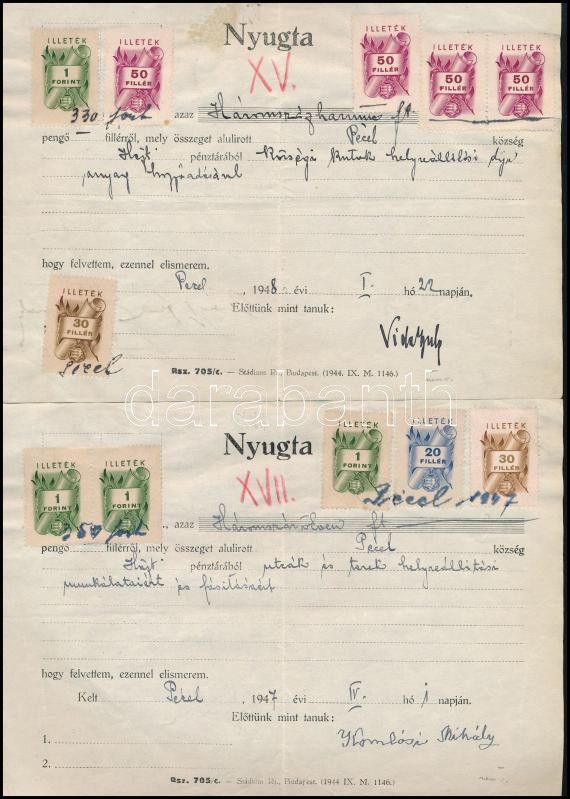 ILLETÉK 1 FORINT
ILLETÉK 50 FILLÉR
Nyugta
XV.
ILLETÉK 50 FILLÉR
ILLETÉK 50 FILLÉR
ILLETÉK 50 FILLÉR
330 azaz Háromszázharminc ft
pengő fillérről, mely összeget alulirott Pécel község
pénztárából községi kutak helyreállítási
anyag
hogy felvettem, ezennel elismerem.
Pecel, 1948 évi I. hó 22 napján.
Előttünk mint tanuk:
ILLETÉK 30 FILLÉR
Pécel
Rsz. 705/c. — Stádium Rt., Budapest. (1944. IX. M. 1146.)
darabanth
Nyugta
XVII.
ILLETÉK 1 FORINT
ILLETÉK 20 FILLÉR
ILLETÉK 30 FILLÉR
ILLETÉK 1 FORINT
ILLETÉK 1 FORINT
Pécel 1947
azaz Háromszázötven ft
pengő fillérről, mely összeget alulirott Pécel község
pénztárából utcák és terek helyreállítási
munkálataiért és fásításáért
hogy felvettem, ezennel elismerem.
Kelt Pécel, 1947 évi IV. hó 1 napján.
Előttünk mint tanuk:
1.
Komlósi Mihály
2.
Rsz. 705/c. — Stádium Rt., Budapest. (1944 IX. M. 1146.)